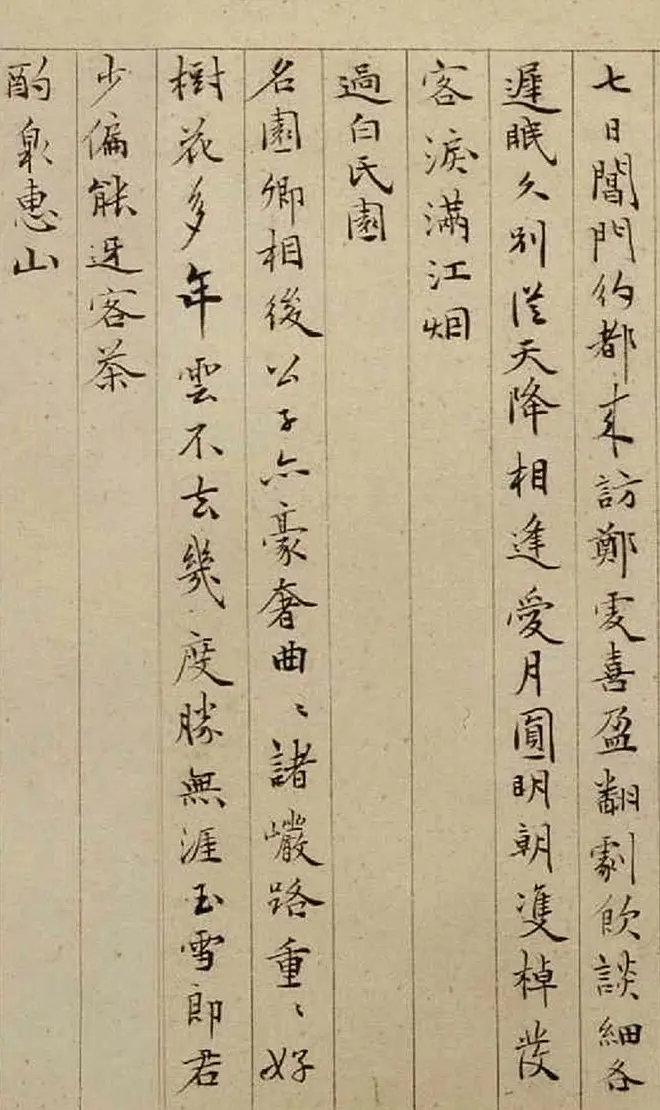 七日閶門約都來訪鄭虔喜盈翻劇飲談細各
遲眠久别從天降相逢愛月圓明朝雙棹發
客淚滿江烟
過白氏園
名園卿相後公子亦豪奢曲〻諸巖路重〻好
樹花多年雲不去幾度勝無涯玉雪郎君
少偏能迓客茶
酌泉惠山